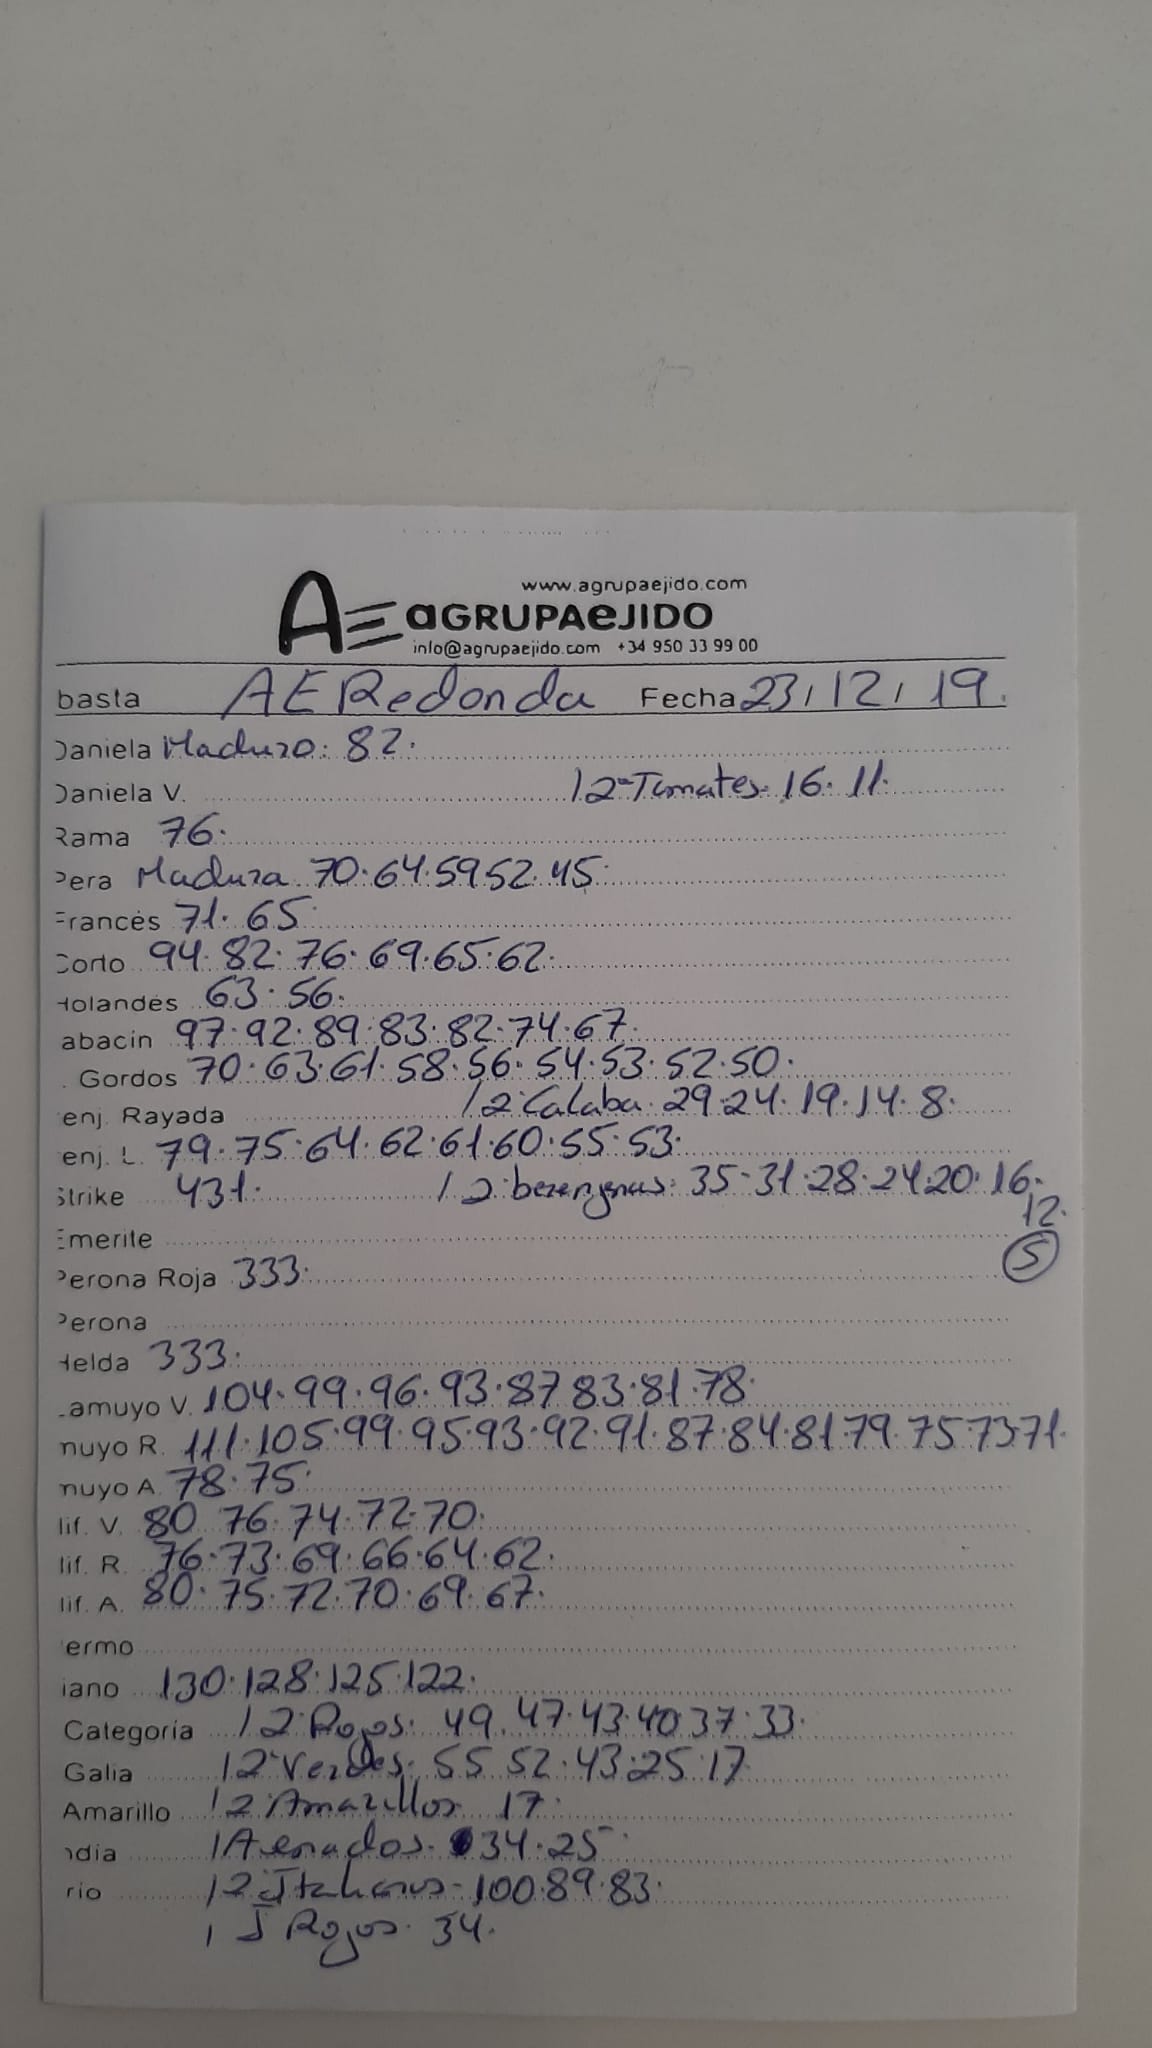 www.agrupaejido.com
AE aGRUPAeJIDO
info@agrupaejido.com +34 950 33 99 00
basta AE Redonda Fecha 23/12/19.
Daniela Maduro: 82.
Daniela V. / 2ª Tomates. 16. 11.
Rama 76.
Pera Madura 70.64.59 52.45.
Francés 71. 65.
Corto 94.82.76.69.65.62.
Holandés 63.56.
abacin 97.92.89.83.82.74.67.
. Gordos 70.63.61.58.56.54.53.52.50.
enj. Rayada / 2ª Calaba. 29.24.19.14.8.
enj. L. 79.75.64.62.61.60.55.53.
Strike 431. / 2ª berenjenas: 35-31.28.24.20.16.
12.
Emerite (S)
Perona Roja 333.
Perona
Helda 333.
Lamuyo V. 104.99.96.93.87 83.81.78.
muyo R. 111.105.99.95.93.92.91.87.84.81.79.75.73.71.
muyo A. 78.75.
lif. V. 80 76.74.72.70.
lif. R. 76.73.69.66.64.62.
lif. A. 80.75.72.70.69.67.
ermo
iano 130.128.125.122.
Categoría / 2ª Rojos. 49.47.43.40.37.33.
Galia / 2ª Verdes. 55 52.43.25.17
Amarillo / 2ª Amarillos. 17.
ndia / Asenados. 34.25.
rio / 2ª Italianos-100.89.83.
/ I Rojos. 34.